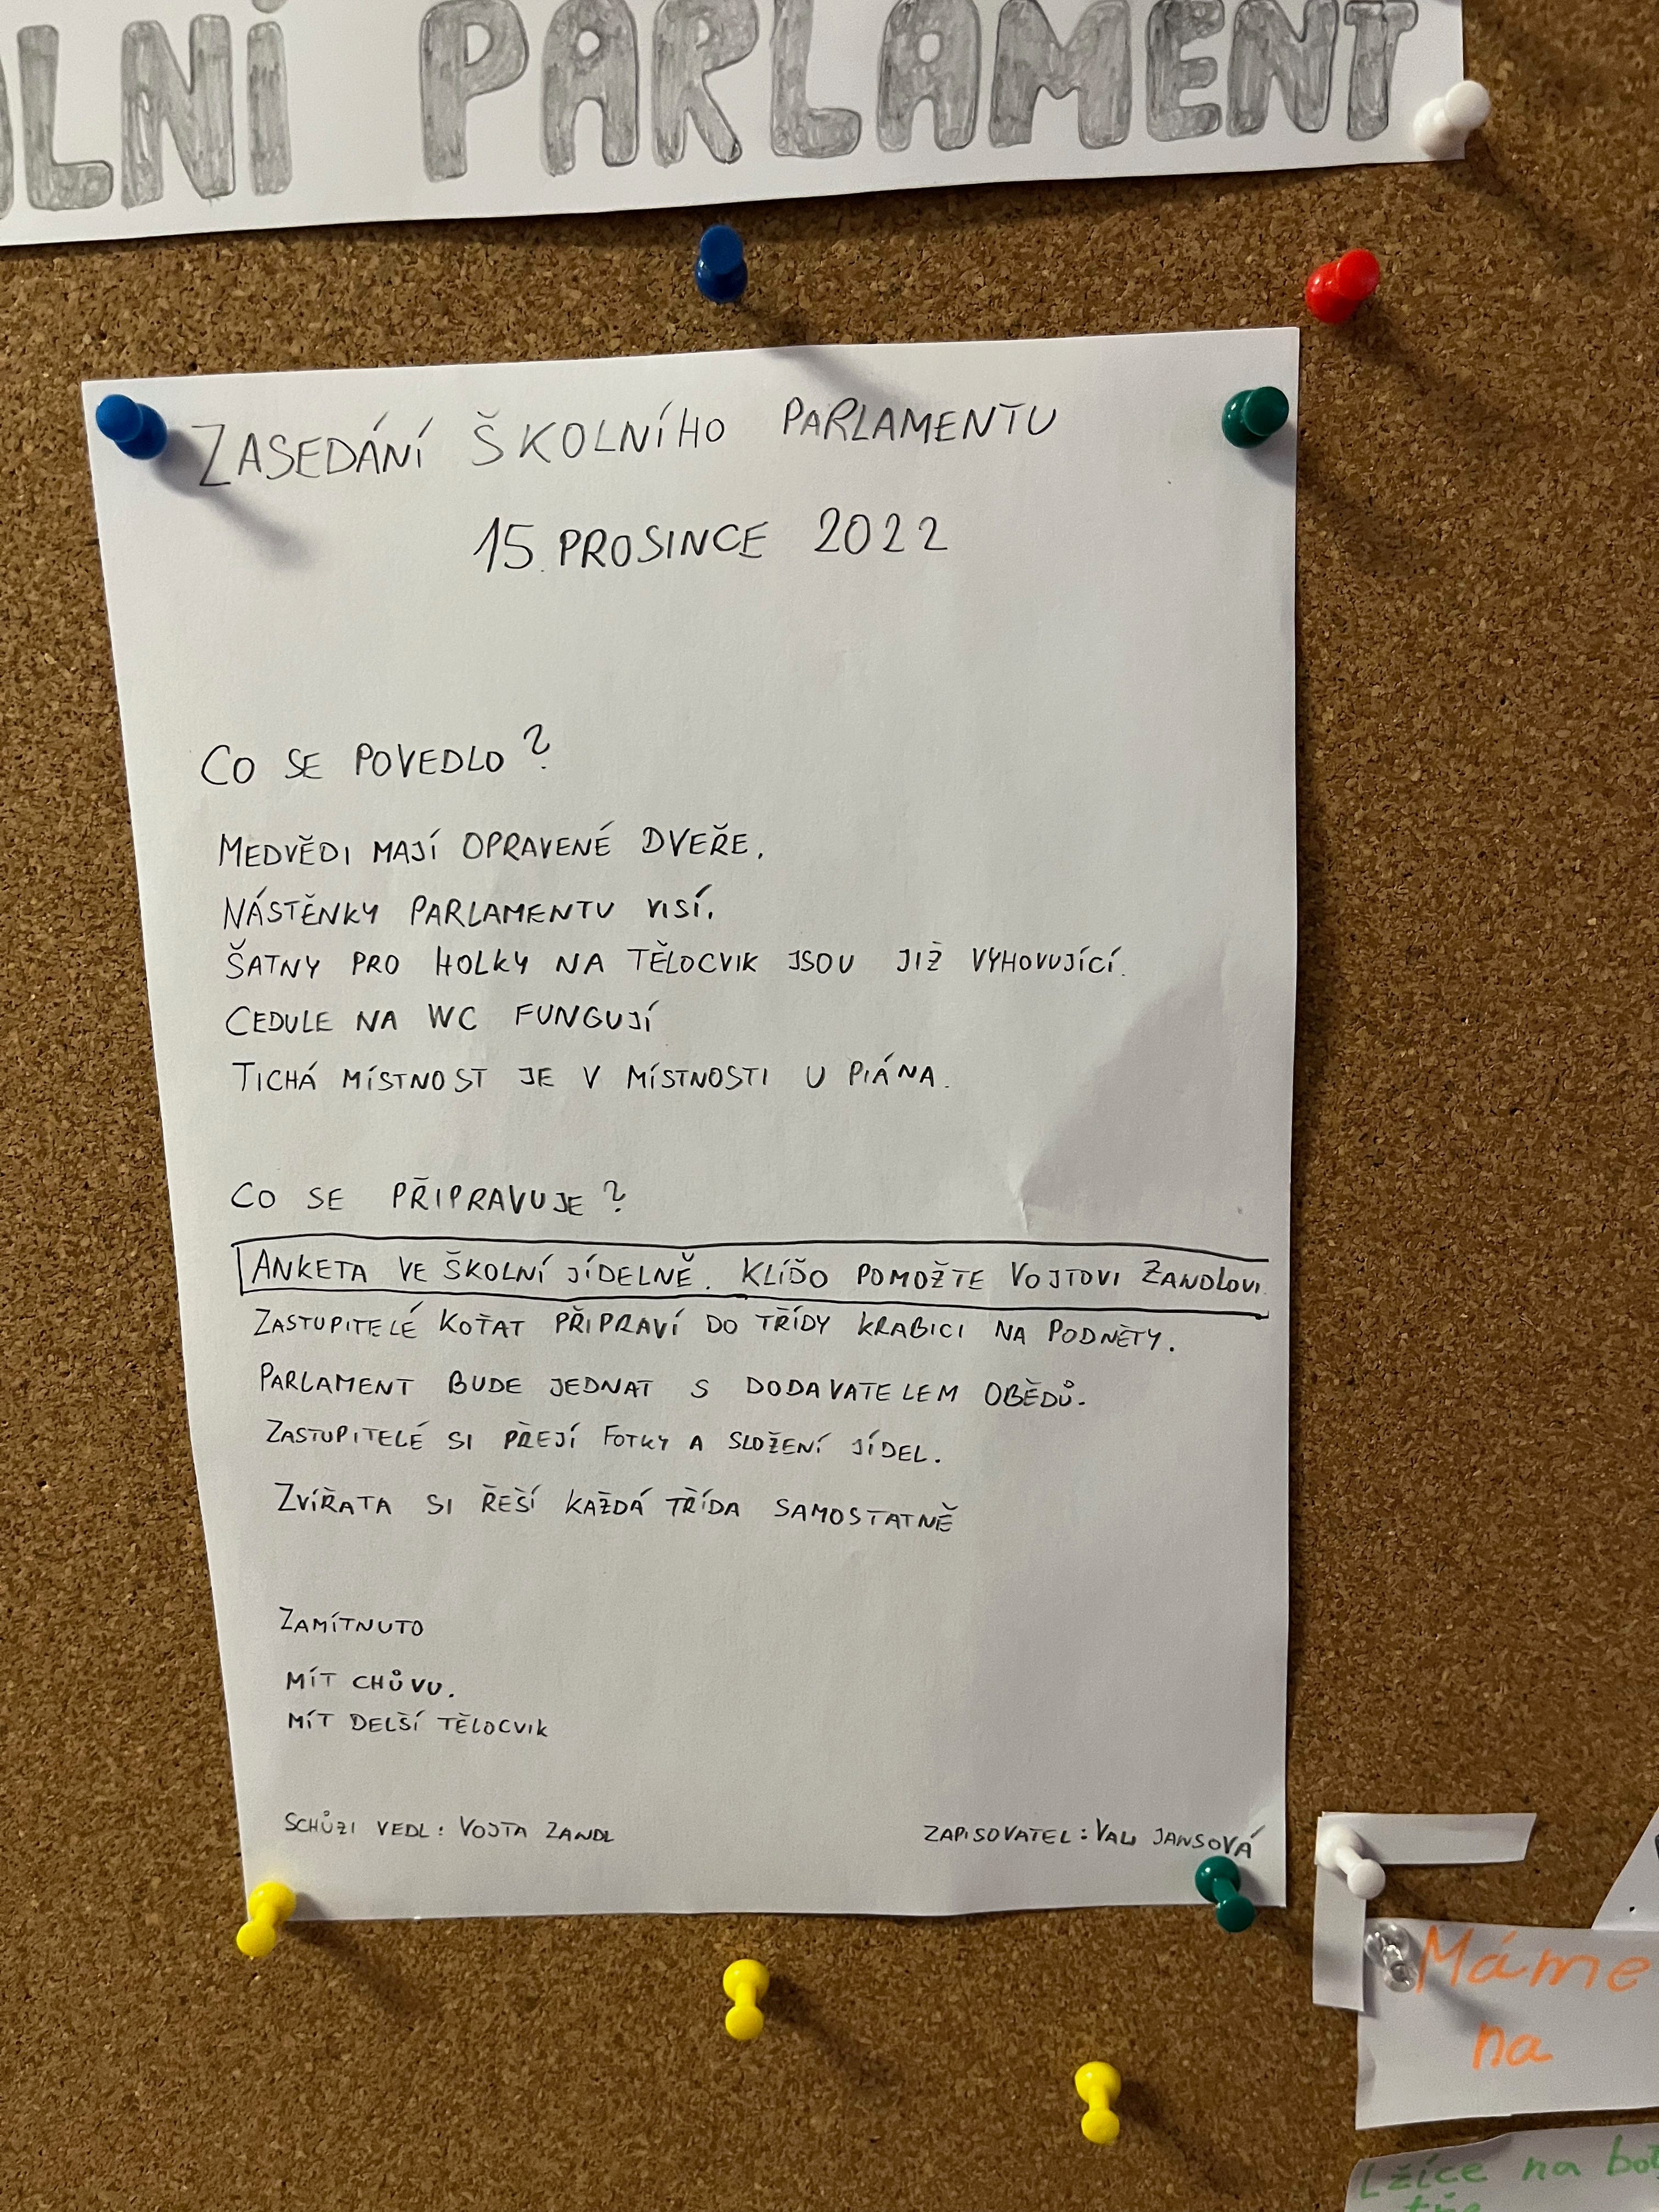 LNÍ PARLAMENT
ZASEDÁNÍ ŠKOLNÍHO PARLAMENTU
15. PROSINCE 2022
CO SE POVEDLO?
MEDVĚDI MAJÍ OPRAVENÉ DVEŘE.
NÁSTĚNKY PARLAMENTU VISÍ.
ŠATNY PRO HOLKY NA TĚLOCVIK JSOU JIŽ VYHOVUJÍCÍ.
CEDULE NA WC FUNGUJÍ
TICHÁ MÍSTNOST JE V MÍSTNOSTI U PIÁNA.
CO SE PŘIPRAVUJE?
ANKETA VE ŠKOLNÍ JÍDELNĚ. POMOŽTE VOJTOVI ZANDLOVI.
ZASTUPITELÉ KOŤAT PŘIPRAVÍ DO TŘÍDY KRABICI NA PODNĚTY.
PARLAMENT BUDE JEDNAT S DODAVATELEM OBĚDŮ.
ZASTUPITELÉ SI PŘEJÍ FOTKY A SLOŽENÍ JÍDEL.
ZVÍŘATA SI ŘEŠÍ KAŽDÁ TŘÍDA SAMOSTATNĚ
ZAMÍTNUTO
MÍT CHŮVU.
MÍT DELŠÍ TĚLOCVIK
SCHŮZI VEDL: VOJTA ZANDL
ZAPISOVATEL: JANSOVÁ
Máme
na
Lžíce na